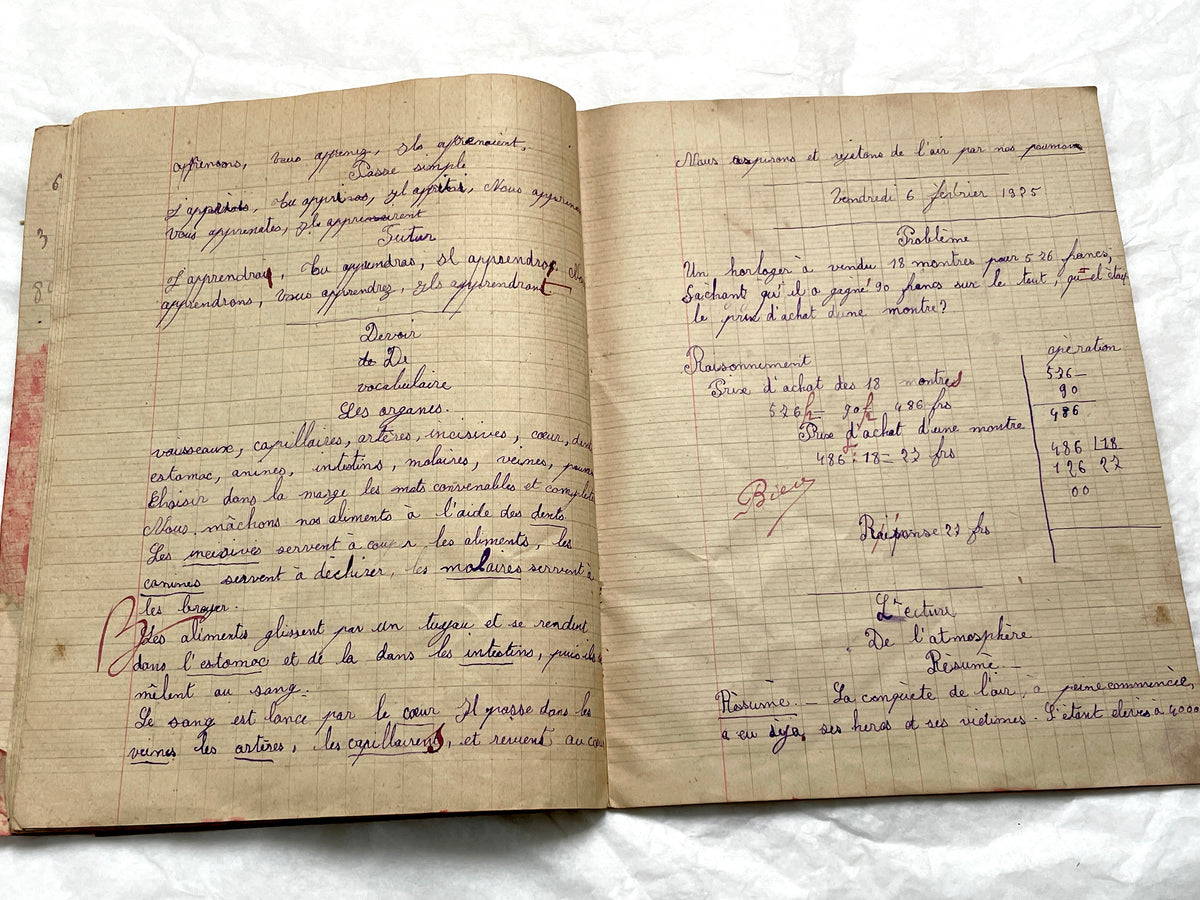 6
3
8
apprenons, vous apprenez, Ils apprenaient,
Passé simple
J'appris, tu appris, Il apprit, Nous apprenons
vous apprenates, Ils apprenairent
Futur
J'apprendrai, tu apprendras, Il apprendra. No
apprendrons, vous apprendrez, Ils apprendront
Devoir
De
vocabulaire
Les organes.
vaisseaux, capillaires, artères, incisives, cœur, dents
estomac, anines, intestins, molaires, veines, poum
Choisir dans la marge les mots convenables et compléte
Nous mâchons nos aliments à l'aide des dents.
Les incisives servent à couper les aliments, les
canines servent à déchirer, les molaires servent à
les broyer.
B
Les aliments glissent par un tuyau et se rendent
dans l'estomac et de la dans les intestins, puis ils s
mêlent au sang.
Le sang est lancé par le cœur Il passe dans les
veines les artères, les capillaires, et revient au cœur
Nous aspirons et rejetons de l'air par nos poumons
Vendredi 6 febrier 1925
Problème
Un horloger à vendu 18 montres pour 576 francs,
Sachant qu'il a gagné 90 francs sur le tout, quel était
le prix d'achat d'une montre?
Raisonnement
Prix d'achat des 18 montres
576 f - 90 f = 486 frs
Prix d'achat d'une montre
486 : 18 = 27 frs
Bien
Réponse 27 frs
opération
576 -
90
486
486 | 18
126 27
00
Lecture
De l'atmosphère
Résumé
Résumé. - La conquète de l'air, à peine commencée,
a eu déja, ses heros et ses victimes. S'étant élevés à 4000